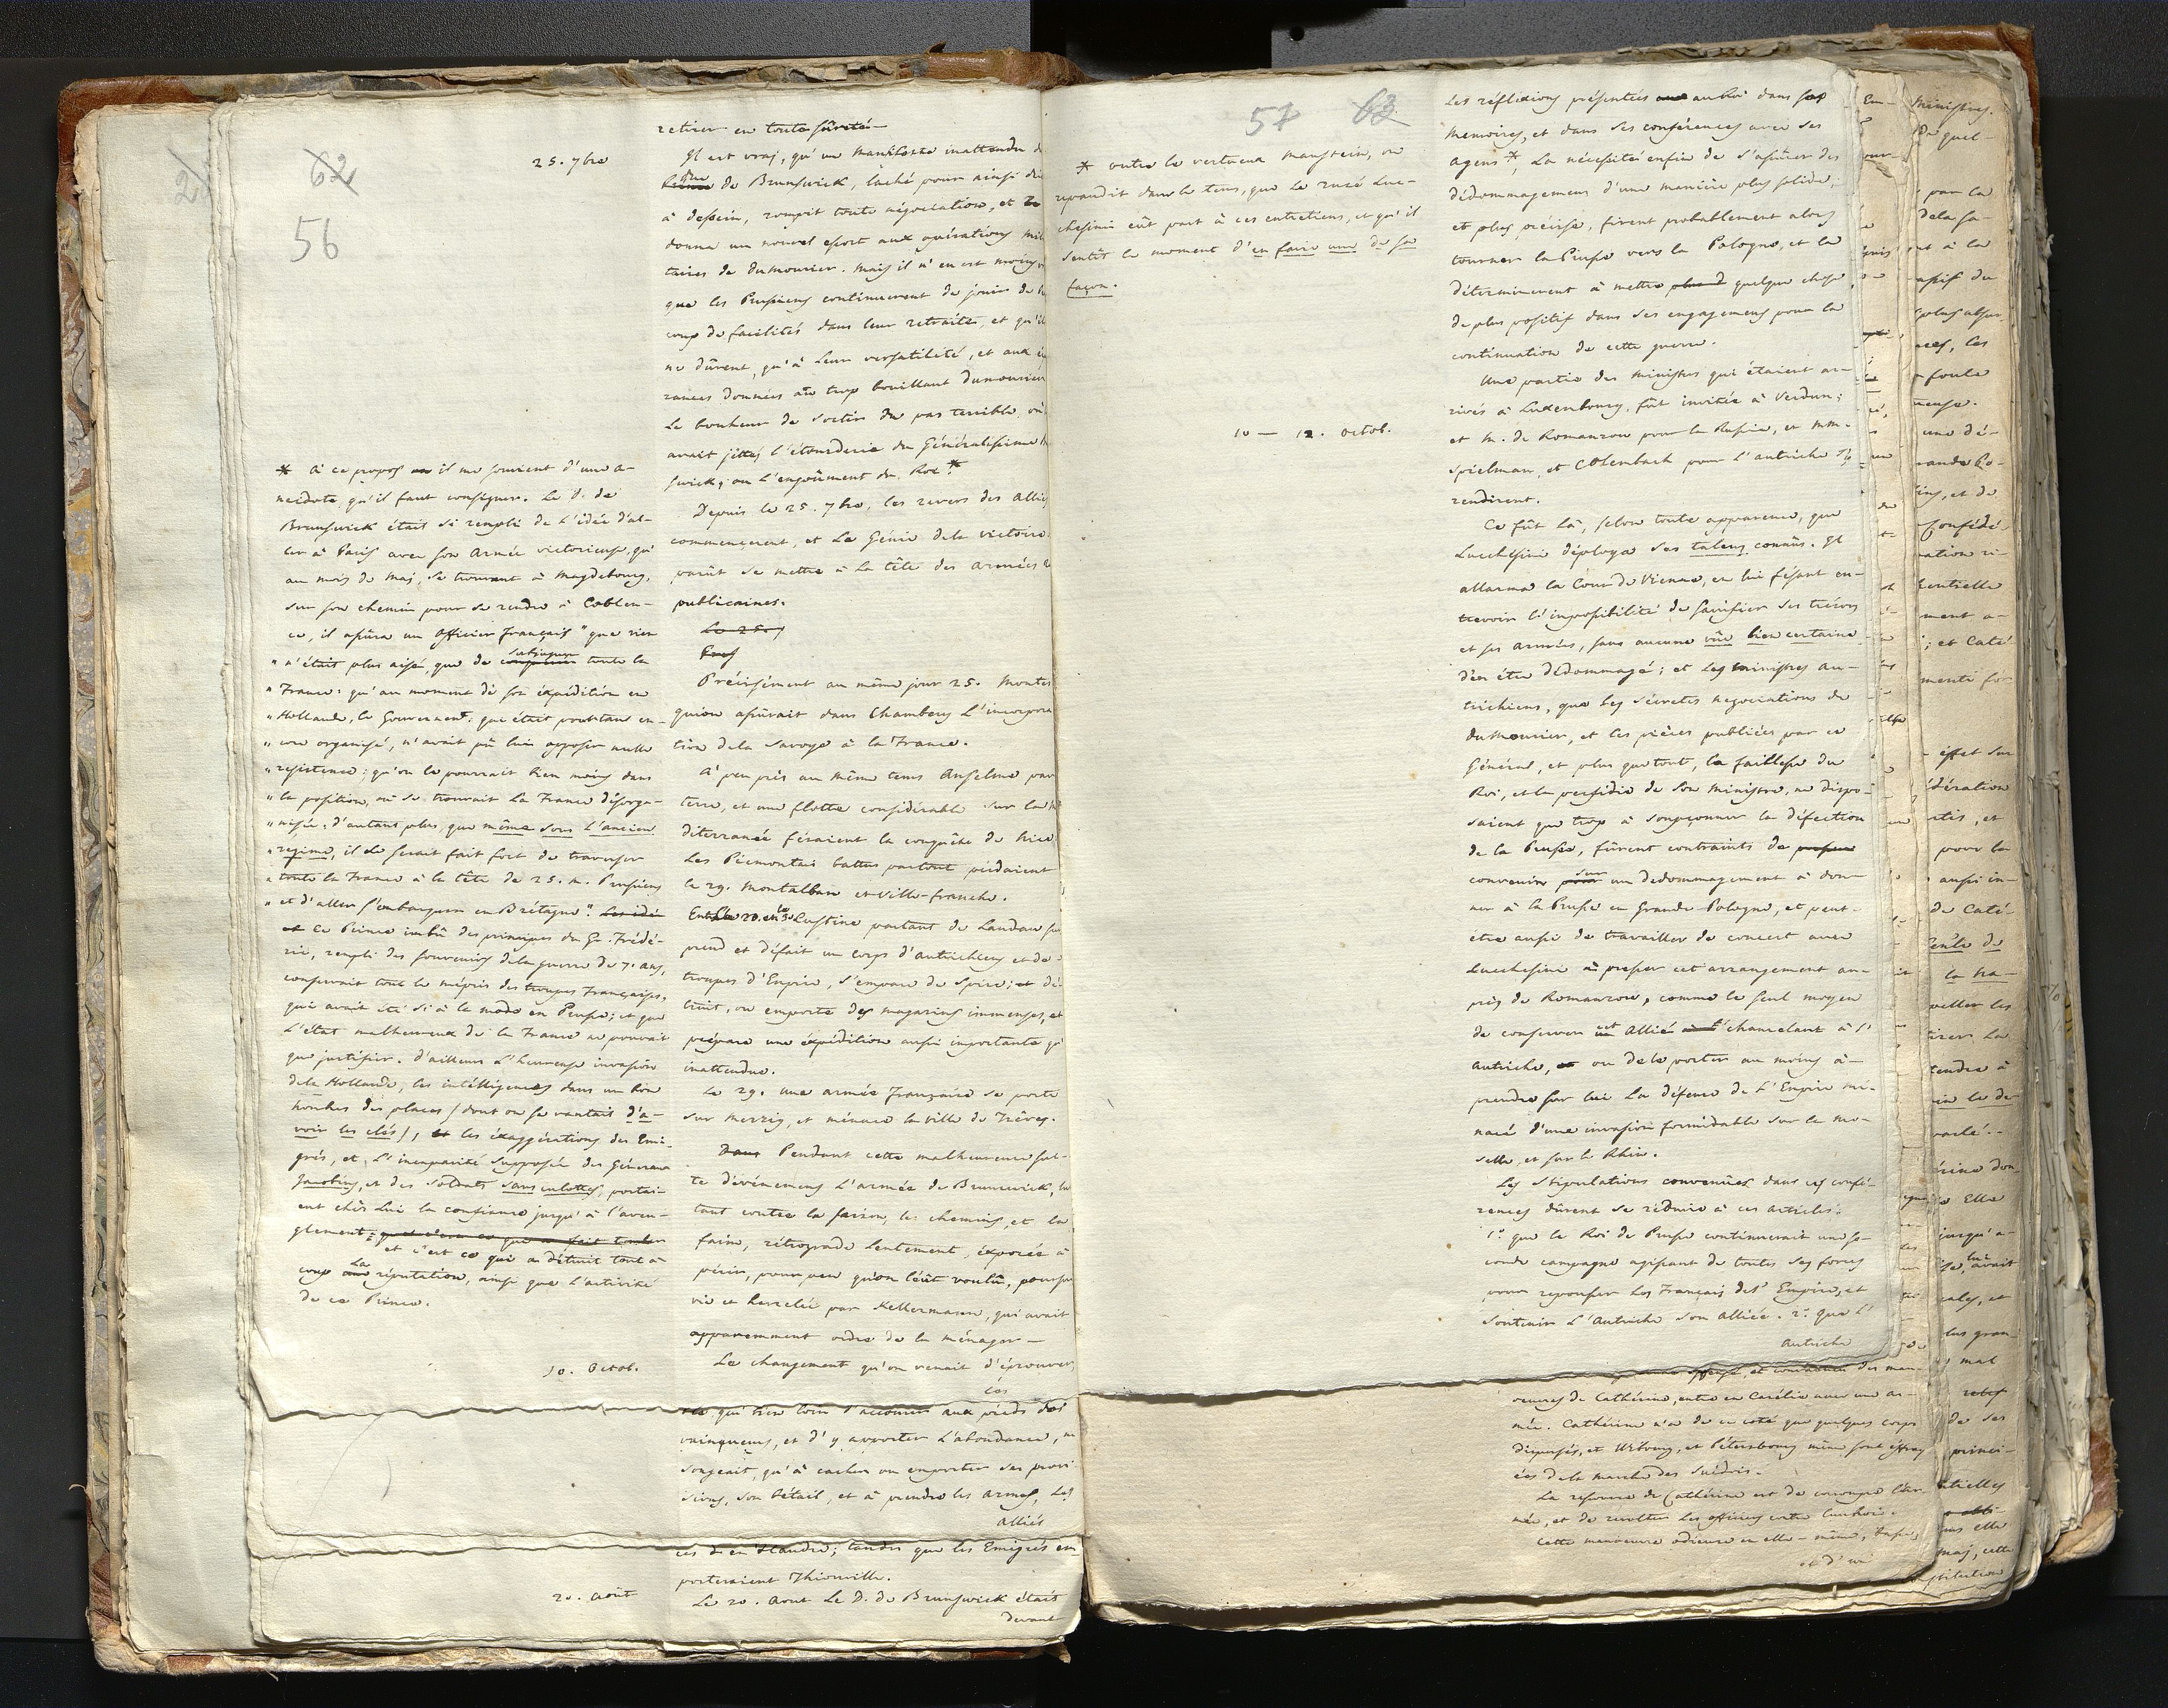 62
56
25. 7bre
retirer en toute sûreté —
Il est vrai, qu'un Manifeste inattendu d
duc de Brunswick, laché pour ainsi di
à dessein, rompit toute négociation, et re
donna un nouvel essort aux opérations mili
taires de dumourier. Mais il n'en est moins
que les Prussiens continuerent de jouir de b
coup de facilités dans leur retraite, et qu'il
ne dûrent, qu'à leur versatilité, et aux
rances données au trop bouillant dumourier
le bonheur de sortir du pas terrible, où
avait jettés l'étourderie du Généralissime
swick, ou l'engoûment du Roi *.
Depuis le 25. 7bre, les revers des Allié
commencerent, et le Génie de la victoire
parût se mettre à la tête des armées ré
publicaines.
Le 25.
Précisément au même jour 25. Montes
quiou assûrait dans Chambery l'incorpora
tion de la Savoye à la France.
A peu près au même tems Anselme par
terre, et une flotte considérable sur la Mé
diterranée féraient la conquête de Nice
Les Piemontais battus partout perdaient
le 29. Montalban et Ville-franche.
Custine partant de Landau
prend et défait un corps d'autrichiens et de
troupes d'Empire, s'empare de Spire; et dé
truit, ou emporte des magazins immenses, et
prépare une expédition aussi importante qu'
inattendue.
Le 29. une armée Française se porte
sur Merzig, et ménace la ville de Trêves.
Dans Pendant cette malheureuse sui-
te d'événemens l'armée de Brunswick, lu
tant contre la saison, les chemins, et la
faim, rétrograde lentement, éxposée à
périr, pour peu qu'on l'eût voulû, poursui
vie et harcelée par Kellermann, qui avait
apparemment ordre de la ménager —
10. Octob.
Le changement qu'on venait d'éprouver
* A ce propos il me souvient d'une a-
necdote, qu'il faut consigner. Le D. de
Brunswick était si rempli de l'idée d'al-
ler à Paris avec son armée victorieuse, qu'
au mois de Maj, se trouvant à Magdebourg,
sur son chemin pour se rendre à Coblen-
ce, il assûra un officier français "que rien
" n'était plus aisé, que de subjuguer toute la
" France: qu'au moment de son éxpédition en
" Hollande, le Gouvernemt. qui était pourtant en-
" core organisé, n'avait pû lui opposer nulle
" resistence; qu'on le pourrait bien moins dans
" la position, où se trouvait la France désorga-
" nisée; d'autant plus, que même sous l'ancien
" regime, il se serait fait fort de traverser
" toute la France à la tête de 25. m. Prussiens
" et d'aller s'embarquer en Brétagne". Les idé
et Ce Prince imbû des principes du Gr. Frédé-
ric, rempli des souvenirs de la guerre de 7. ans,
conservait tout le mépris des troupes Françaises,
qui avait été si à la mode en Prusse; et que
l'état malheureux de la France ne pouvait
que justifier. D'ailleurs l'heureuse invasion
de la Hollande, les intélligences dans un bon
nombre des places (dont on se vantait d'a-
voir les clés), et les éxaggérations des Emi-
grés, et l'incapacité supposée des Généraux
Jacobins, et des soldats sans culottes, portai-
ent chès lui la confiance jusqu'à l'aveu-
glement;
et c'est ce qui a détruit tout à
coup la réputation, ainsi que l'activité
de ce Prince.
vainqueurs, et d'y apporter l'abondance, ne
songeait, qu'à cacher ou emporter ses provi
sions, son bétail, et à prendre les armes, les
alliés
ces de en Flandre; tandis que les Emigrés em
porteraient Thionville.
20. août
Le 20. Aout le D. de Brunswick était
devant
57 63
* outre le vertueux Manstein, on
repandit dans le tems, que le rusé Luc-
chesini eût part à ces entretiens, et qu'il
sentit le moment d'en faire une de sa
façon.
10 — 12. Octob.
Les réflexions présentées au Roi dans ses
memoires, et dans ses conférences avec ses
agens *, la nécéssité enfin de s'assûrer des
dédommagemens d'une manière plus solide,
et plus précise, firent probablement alors
tourner la Prusse vers la Pologne, et la
déterminerent à mettre quelque chose
de plus positif dans ses engagemens pour la
continuation de cette guerre.
Une partie des ministres qui étaient ar-
rivés à Luxembourg, fût invitée à Verdun;
et M. de Romanzow pour la Russie, et MM.
Spielmann, et Collenbach pour l'autriche s'y
rendirent.
Ce fût là, selon toute apparence, que
Lucchesini déploya ses talens connûs. Il
allarma la Cour de Vienne, en lui fésant en-
trevoir l'impossibilité de sacrifier ses trésors
et ses armées, sans aucune vûe bien certaine
d'en étre dédommagé; et les ministres au-
trichiens, que les sécretes négociations de
dumourier, et les pièces publiées par ce
Général, et plus que tout, la faiblesse du
Roi, et la perfidie de son ministre, ne dispo-
saient que trop à soupçonner la défection
de la Prusse, fûrent contraints de
convenir sur un dedommagement à don-
ner à la Prusse en Grande-Pologne, et peut-
etre aussi de travailler de concert avec
Lucchesini à presser cet arrangement au-
près de Romanzow, comme le seul moyen
de conserver cet Allié chancelant à l'
autriche, ou de le porter au moins à
prendre sur lui la défense de l'Empire me-
nacé d'une invasion formidable sur la Mo-
selle, et sur le Rhin.
Les stipulations convenûes dans ces confé-
rences dûrent se réduire à ces articles:
1.º que le Roi de Prusse continuerait une se-
conde campagne agissant de toutes ses forces
pour repousser les Français de l'Empire, et
soutenir l'Autriche son alliée. 2.º que l'
autriche
œuvres de Cathérine, entre en Carélie avec une ar-
mée. Cathérine n'a de ce coté que quelques corps
dispersés, et Wibourg, et Pétersbourg même sont éffray
ées de la marche des Suédois.
La resource de Cathérine est de corrompre l'ar-
mée, et de revolter les officiers contre
Cette manoeuvre odieuse en elle-même,